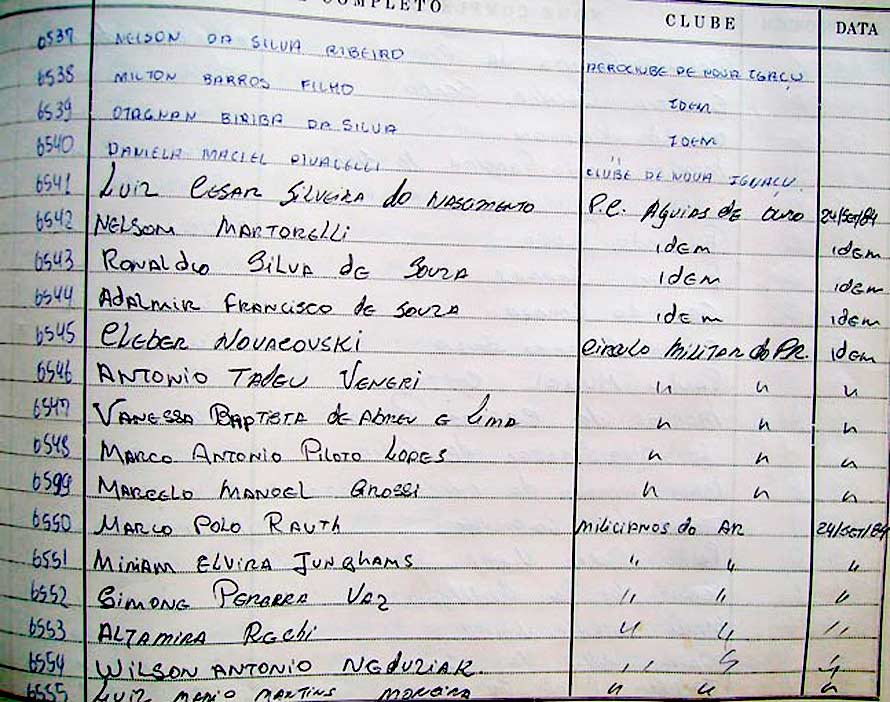 COMPLETO CLUBE DATA
6537 NELSON DA SILVA RIBEIRO AEROCLUBE DE NOVA IGAÇU
6538 MILTON BARROS FILHO IDEM
6539 OTAGNAN BIRIBA DA SILVA IDEM
6540 DANIELA MACIEL CLUBE DE NOVA IGUAÇU.
6541 LUIZ CESAR SILVEIRA do NASCIMENTO P.C. AGUIAS DE OURO 24/SET/84
6542 NELSON MARTORELLI idEm idEm
6543 RONALDO SILVA dE SOUZA idEm idEm
6544 ADALMIR FRANCISCO dE SOUZA idEm idEm
6545 CLEBER NOVACOVSKI CIRCULO MILITAR do PR. idEm
6546 ANTONIO TADEU VENERI " " "
6547 VANESSA BAPTISTA dE ABREU E LIMA " " "
6548 MARCO ANTONIO PILOTO LOPES " " "
6599 MARCELO MANOEL GROSSI " " "
6550 MARCO POLO RAUTH MILICIANOS do AR 24/SET/84
6551 MIRIAM ELVIRA JUNGHAMS " " "
6552 SIMONE VAZ " " "
6553 ALTAMIRA " " "
6554 WILSON ANTONIO NEDUZIAK. " " "
6555 LUIZ MARIO MARTINS MOREIRA " " "